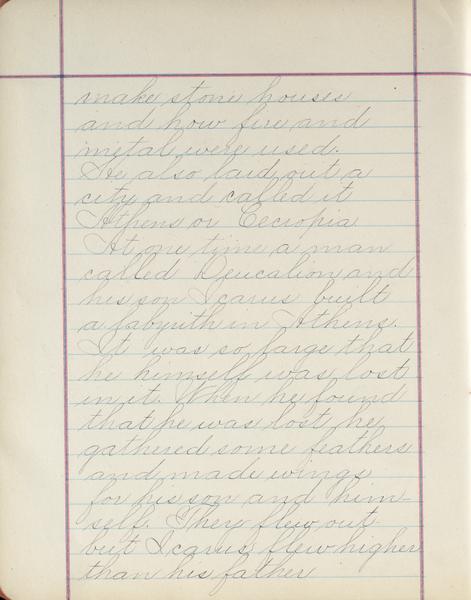 make stone houses
and how fire and
metal were used.
He also laid out a
city and called it
Athens or Cecropia
At one time a man
called Deucalion and
his son Icarus built
a labyrith in Athens.
It was so large that
he himself was lost
in it. When he found
that he was lost he
gathered some feathers
and made wings
for his son and him-
self. They flew out
but Icarus flew higher
than his father